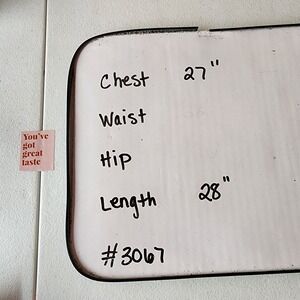 Chest 27"
Waist
Hip
Length 28"
#3067
You've
got
great
taste